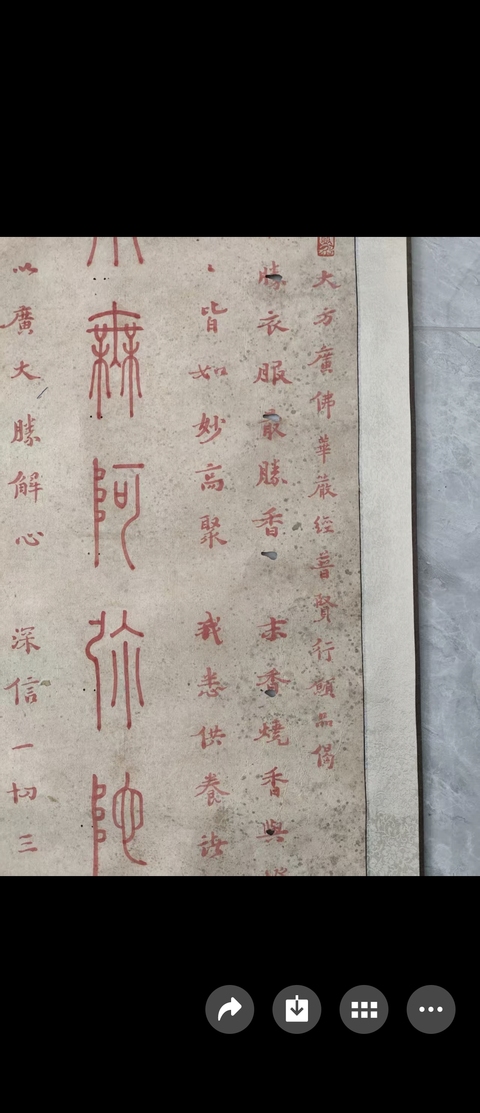 大方廣佛華嚴經普賢行願品偈
勝衣服最勝香 末香燒香與
皆如妙高聚 我悉供養諸
無阿彌陀
以廣大勝解心 深信一切三